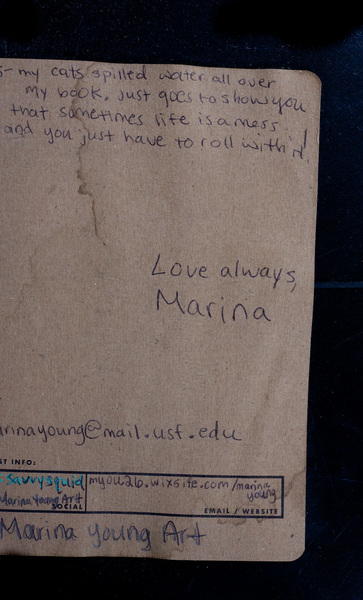 S- my cats spilled water all over
my book. Just goes to show you
that sometimes life is a mess
and you just have to roll with it!
Love always,
Marina
arinayoung@mail.usf.edu
ST INFO:
savvysquid
myou26.wixsite.com/marina
young
Marina Young Art
SOCIAL
EMAIL / WEBSITE
Marina Young Art